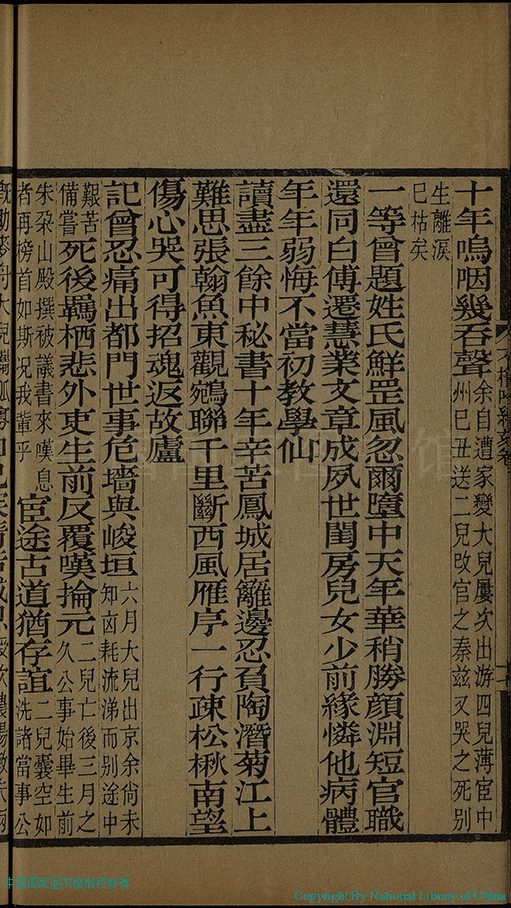 十年嗚咽幾吞聲余自遭家變大兒屢次出游四兒薄宦中州巳丑送二兒改官之秦兹又哭之死別
生離淚巳枯矣
一等曾題姓氏鮮罡風忽爾墮中天年華稍勝顏淵短官職
還同白傅遷慧業文章成夙世閨房兒女少前緣憐他病體
年年弱悔不當初教學仙
讀盡三餘中秘書十年辛苦鳳城居籬邊忍負陶潛菊江上
難思張翰魚東觀鵷聯千里斷西風雁序一行疎松楸南望
傷心哭可得招魂返故廬
記曾忍痛出都門世事危墻與峻垣六月大兒出京余尙未知卤耗流涕而別途中
艱苦備嘗死後羈栖悲外吏生前反覆嘆掄元二兒亡後三月之久公事始畢生前
朱朶山殿撰被議書來嘆息者再榜首如斯况我輩乎宦途古道猶存誼二兒囊空如洗諸當事公
Copyright by National Library of China